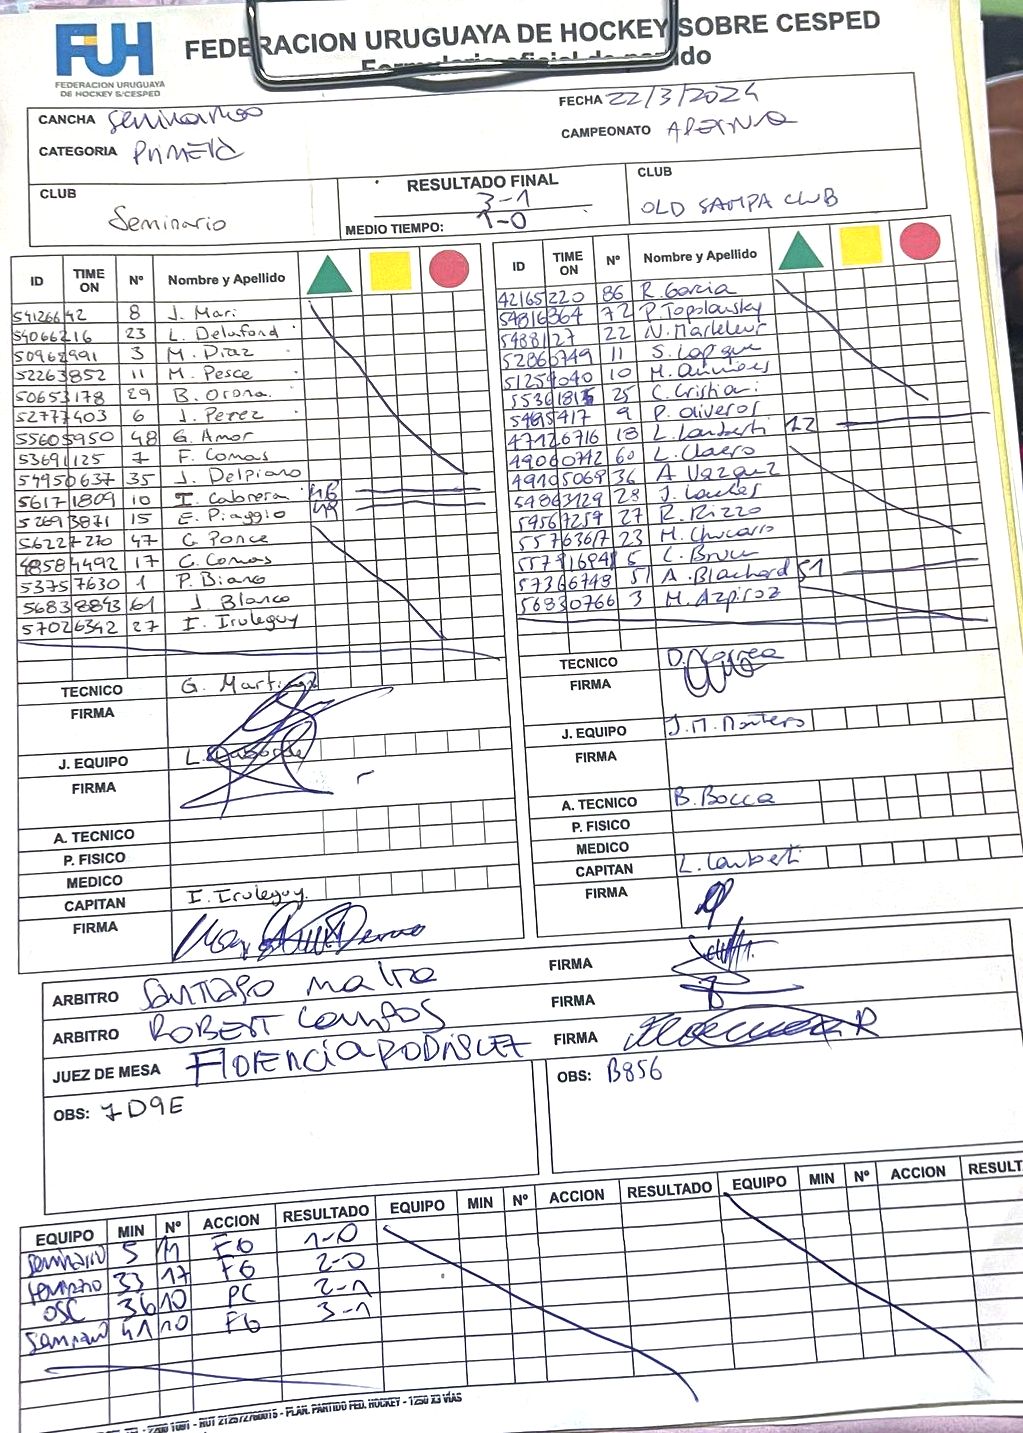 FUH
FEDERACION URUGUAYA
DE HOCKEY S/CESPED
FEDERACION URUGUAYA DE HOCKEY SOBRE CESPED
Formulario oficial de partido
CANCHA Seminario
FECHA 22/3/2024
CATEGORIA Primera
CAMPEONATO APERTURA
CLUB
Seminario
RESULTADO FINAL
3-1
MEDIO TIEMPO: 1-0
CLUB
OLD SAMPA CLUB
ID TIME ON Nº Nombre y Apellido
54126642 8 J. Mari
54066216 23 L. Delafond
50962991 3 M. Diaz
52263852 11 M. Pesce
50653178 29 B. Orona
52777403 6 J. Perez
55605950 48 G. Amor
53691125 7 F. Comas
54950637 35 J. Delpiano
56171809 10 I. Cabrera 46
52693871 15 E. Piaggio 49
56227270 47 G. Ponce
48584492 17 C. Comas
53757630 1 P. Biano
56838843 61 J. Blanco
57026342 27 I. Iruleguy
TECNICO G. Martinez
FIRMA
J. EQUIPO L. Laborde
FIRMA
A. TECNICO
P. FISICO
MEDICO
CAPITAN I. Iruleguy
FIRMA
ID TIME ON Nº Nombre y Apellido
42165220 86 R. Garcia
54816364 72 P. Topolansky
5488127 22 N.
52866749 11 S.
51254040 10 M.
55361815 25 C. Cristiai
5485417 9 P. Oliveros
47126716 18 L. Lamberti 12
49060742 60 L. Claero
49105069 36 A Vazquez
54863129 28 J.
59567259 27 R. Rizzo
55763617 23 M. Chucarro
55791694 5 C. Bruce
57366749 51 A. Blachard 51
56830766 3 M. Azpiroz
TECNICO D. Correa
FIRMA
J. EQUIPO J.M. Montero
FIRMA
A. TECNICO B. Bocca
P. FISICO
MEDICO
CAPITAN L. Lamberti
FIRMA
ARBITRO SANTIAGO FIRMA
ARBITRO ROBERT CAMPOS FIRMA
JUEZ DE MESA FLORENCIA RODRIGUEZ FIRMA
OBS: 7D9E
OBS: B856
EQUIPO MIN Nº ACCION RESULTADO EQUIPO MIN Nº ACCION RESULTADO EQUIPO MIN Nº ACCION RESULT
Seminario 5 11 FG 1-0
Seminario 33 17 FG 2-0
OSC 36 10 PC 2-1
Seminario 41 10 FG 3-1
RUT 212572760015 - PLAN. PARTIDO FED. HOCKEY - 1250 X3 VÍAS